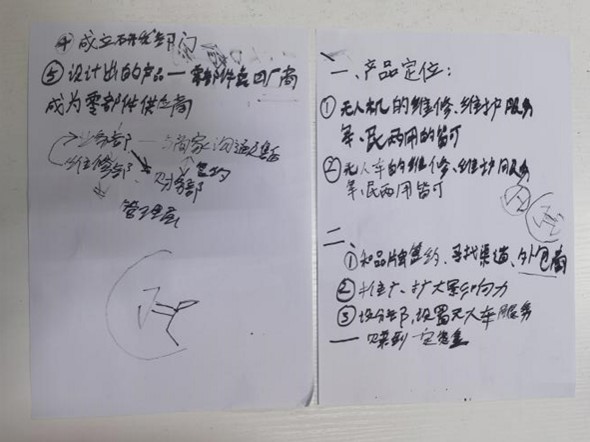 一、产品定位：
①无人机的维修、维护服务
军、民两用的皆可
②无人车的维修、维护服务
军、民两用皆可
二、
①和品牌签约、寻找渠道、外包商
②推广、扩大影响力
③设分部，设置无人车服务
— 赚到一定
④成立研发部门
⑤设计出的产品—零部件卖回厂商
成为零部件供应商
业务部—与商家沟通
维修部 财务部 签约
管理层